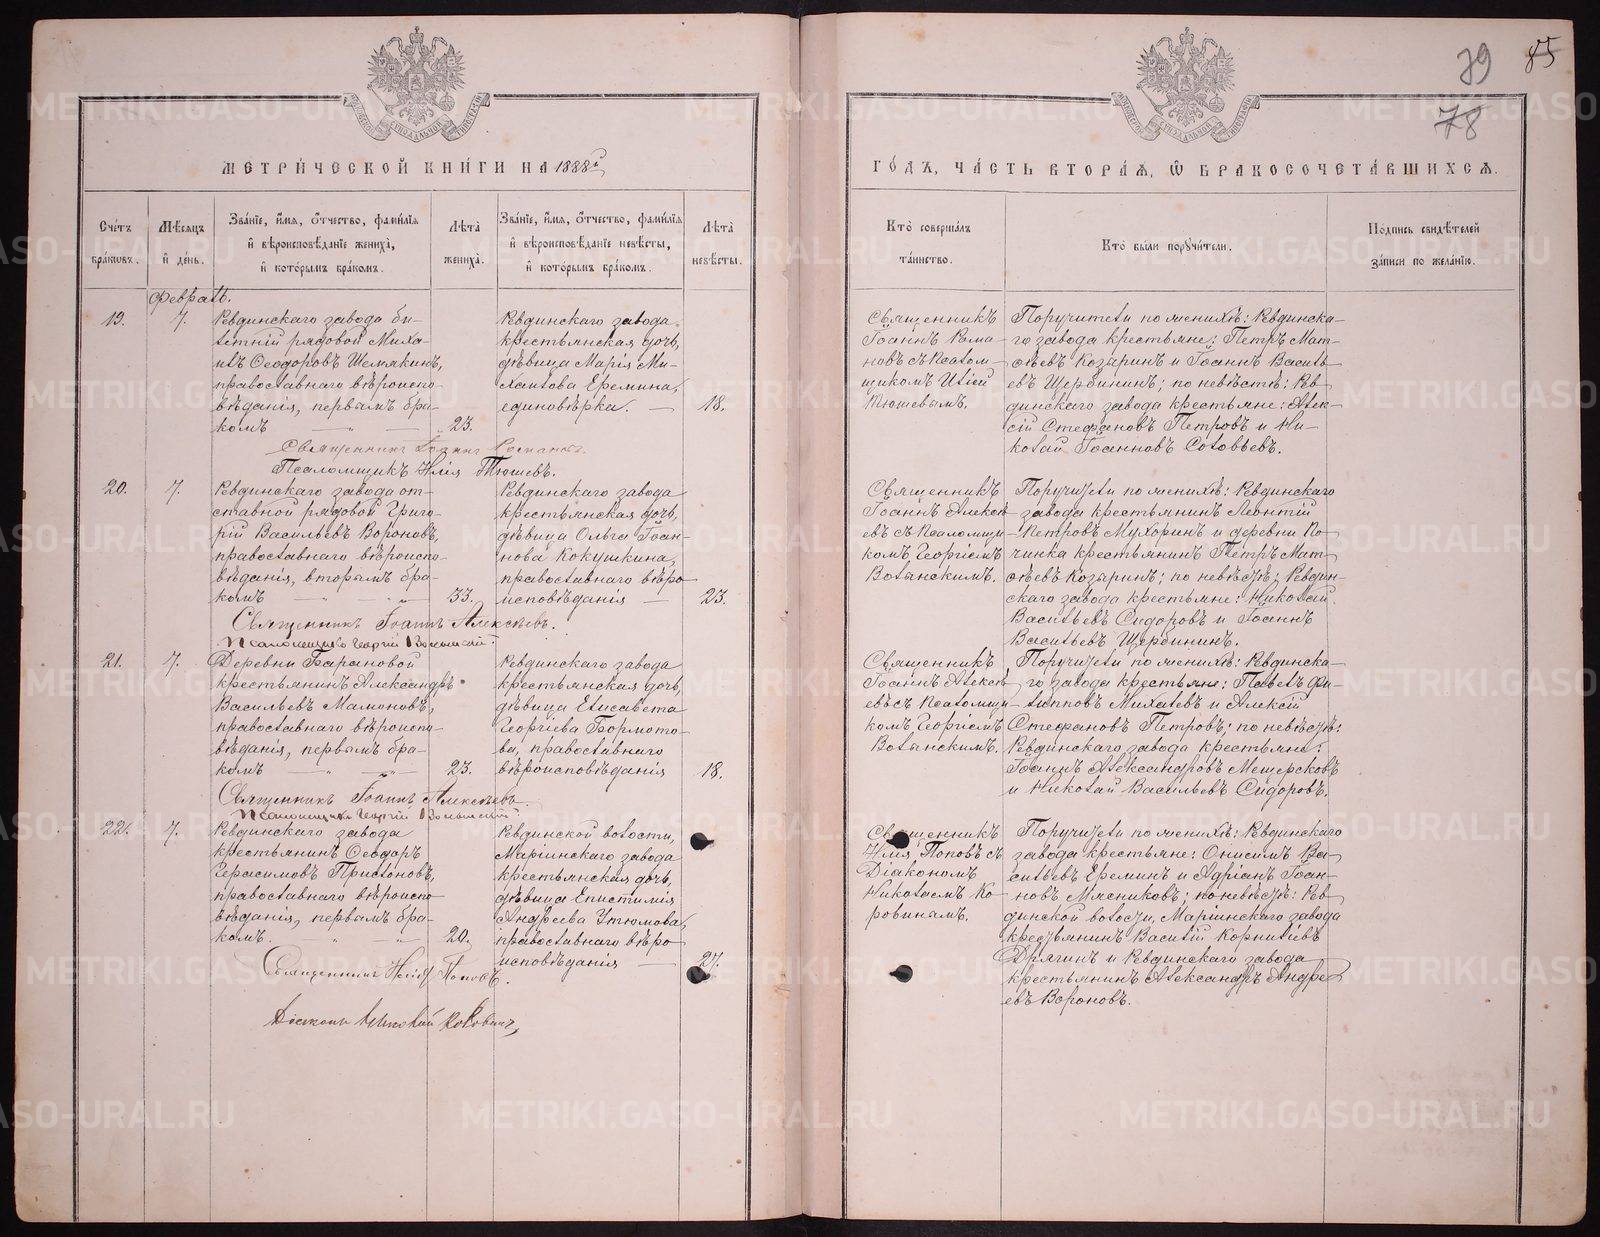 79
85
78
МЕТРИ́ЧЕСКОЙ КНИ́ГИ НА 1888й
ГО́ДЪ, ЧА́СТЬ ВТОРА́Я, Ѡ БРАКОСОЧЕТА́ВШИХСЯ.
Сче́тъ
бра́ковъ.
Мѣ́сяцъ
и́ де́нь.
Зва́нїе, и́мя, о́тчество, фами́лїя
и́ вѣроисповѣ́данїе жениха̀,
и́ кото́рымъ бра́комъ.
Лѣ́та
жениха̀.
Зва́нїе, и́мя, о́тчество, фами́лїя
и́ вѣроисповѣ́данїе невѣ́сты,
и́ кото́рымъ бра́комъ.
Лѣ́та
невѣ́сты.
Кто̀ соверша́лъ
та́инство.
Кто̀ бы́ли порꙋчи́тели.
По́дпись свидѣ́телей
за́писи по жела́нїю.
Февраль.
19.
7.
Ревдинскаго завода би-
летній рядовой Миха-
илъ Ѳеодоровъ Шемякинъ,
православнаго вѣроиспо-
вѣданія, первымъ бра-
комъ
23.
Ревдинскаго завода
крестьянская дочь,
дѣвица Марія Ми-
хаилова Еремина,
единовѣрка.
18.
Священникъ
Іоаннъ Рома-
новъ съ Псалом-
щикомъ Иліей
Тюшевымъ.
Поручители по женихѣ: Ревдинска-
го завода крестьяне: Петръ Мат-
ѳѣевъ Козаринъ и Іоаннъ Василь-
евъ Щербининъ; по невѣстѣ: Рев-
динскаго завода крестьяне: Алек-
сій Стефановъ Петровъ и Ни-
колай Іоанновъ Соловьевъ.
Священникъ Іоаннъ Романовъ.
Псаломщикъ Илія Тюшевъ.
20.
7.
Ревдинскаго завода от-
ставной рядовой Григо-
рій Васильевъ Вороновъ,
православнаго вѣроиспо-
вѣданія, вторымъ бра-
комъ
33.
Ревдинскаго завода
крестьянская дочь,
дѣвица Ольга Іоан-
нова Кокушкина,
православнаго вѣро
исповѣданія
23.
Священникъ
Іоаннъ Алексѣ-
евъ съ Псаломщи-
комъ Георгіемъ
Волынскимъ.
Поручители по женихѣ: Ревдинскаго
завода крестьянинъ Леонтій
Петровъ Мухоринъ и деревни По-
чинка крестьянинъ Петръ Мат-
ѳѣевъ Козаринъ; по невѣстѣ: Ревдин-
скаго завода крестьяне: Николай
Васильевъ Сидоровъ и Іоаннъ
Васильевъ Щербининъ.
Священникъ Іоаннъ Алексѣевъ.
Псаломщикъ Георгій Волынскій.
21.
7.
Деревни Барановой
крестьянинъ Александръ
Васильевъ Мамоновъ,
православнаго вѣроиспо-
вѣданія, первымъ бра-
комъ
23.
Ревдинскаго завода
крестьянская дочь,
дѣвица Елисавета
Георгіева Бормото-
ва, православнаго
вѣроисповѣданія
18.
Священникъ
Іоаннъ Алексѣ-
евъ съ Псаломщи-
комъ Георгіемъ
Волынскимъ.
Поручители по женихѣ: Ревдинска-
го завода крестьяне: Павелъ Фи-
липповъ Михалевъ и Алексій
Стефановъ Петровъ; по невѣстѣ:
Ревдинскаго завода крестьяне:
Іоаннъ Александровъ Мещерсковъ
и Николай Васильевъ Сидоровъ.
Священникъ Іоаннъ Алексѣевъ.
Псаломщикъ Георгій Волынскій.
22.
7.
Ревдинскаго завода
крестьянинъ Ѳеодоръ
Герасимовъ Пристоновъ,
православнаго вѣроиспо
вѣданія, первымъ бра-
комъ.
20.
Ревдинской волости,
Маріинскаго завода
крестьянская дочь,
дѣвица Епистимія
Андреева Утюмова,
православнаго вѣро
исповѣданія
27.
Священникъ
Илія Поповъ съ
Діакономъ
Николаемъ Ко-
ровинымъ.
Поручители по женихѣ: Ревдинскаго
завода крестьяне: Онисимъ Ва-
сильевъ Ереминъ и Адріанъ Іоан-
новъ Мясниковъ; по невѣстѣ: Рев-
динской волости, Маріинскаго завода
крестьянинъ Василій Корниліевъ
Дрягинъ и Ревдинскаго завода
крестьянинъ Александръ Андре
евъ Вороновъ.
Священникъ Илія Поповъ.
Діаконъ Николай Коровинъ,